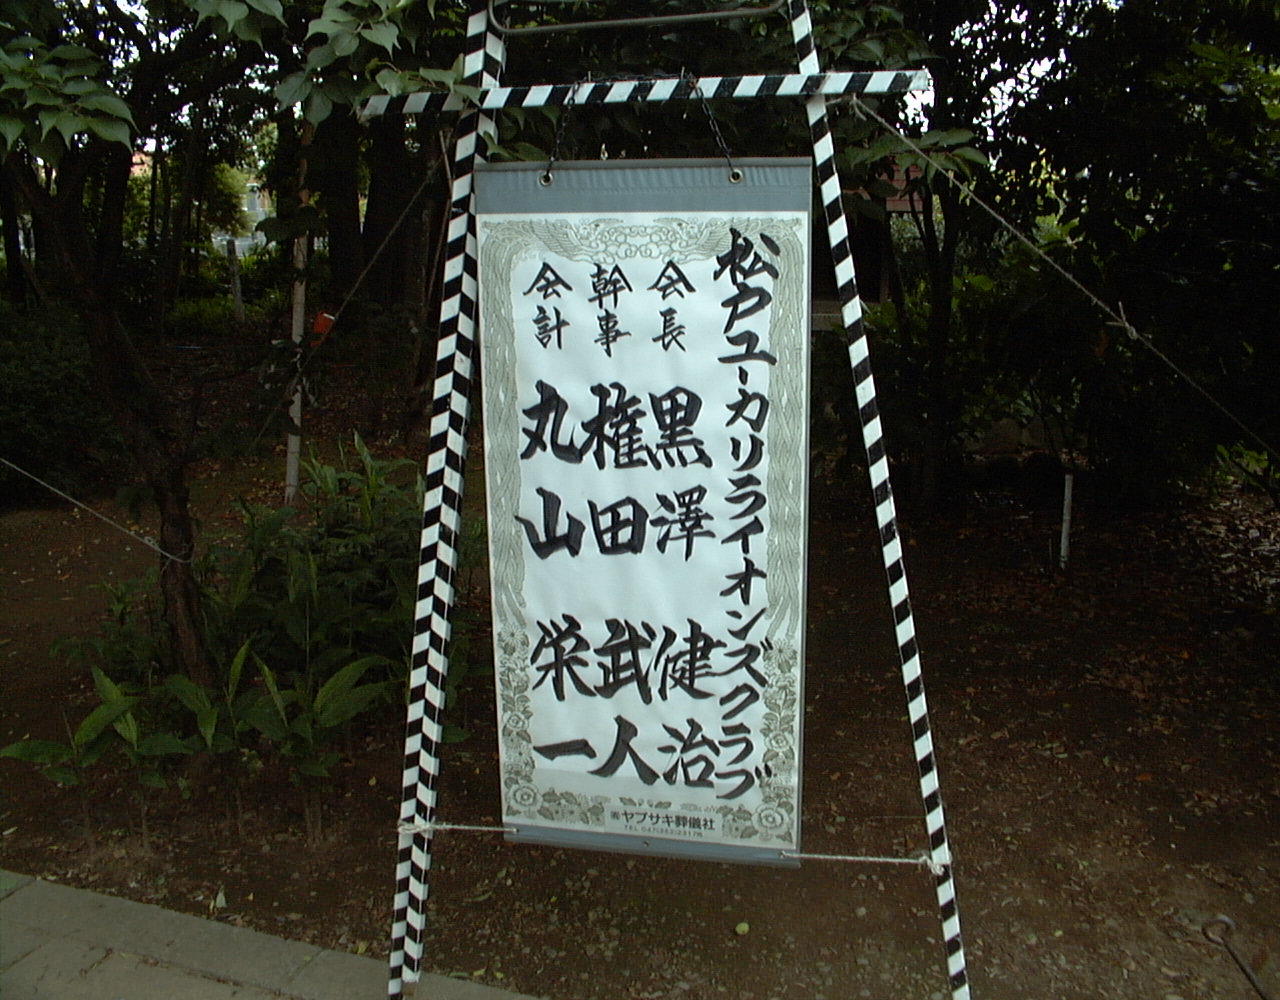 松戸ユーカリライオンズクラブ
会長 黒澤 健治
幹事 権田 武人
会計 丸山 栄一
㈲ヤブサキ葬儀社